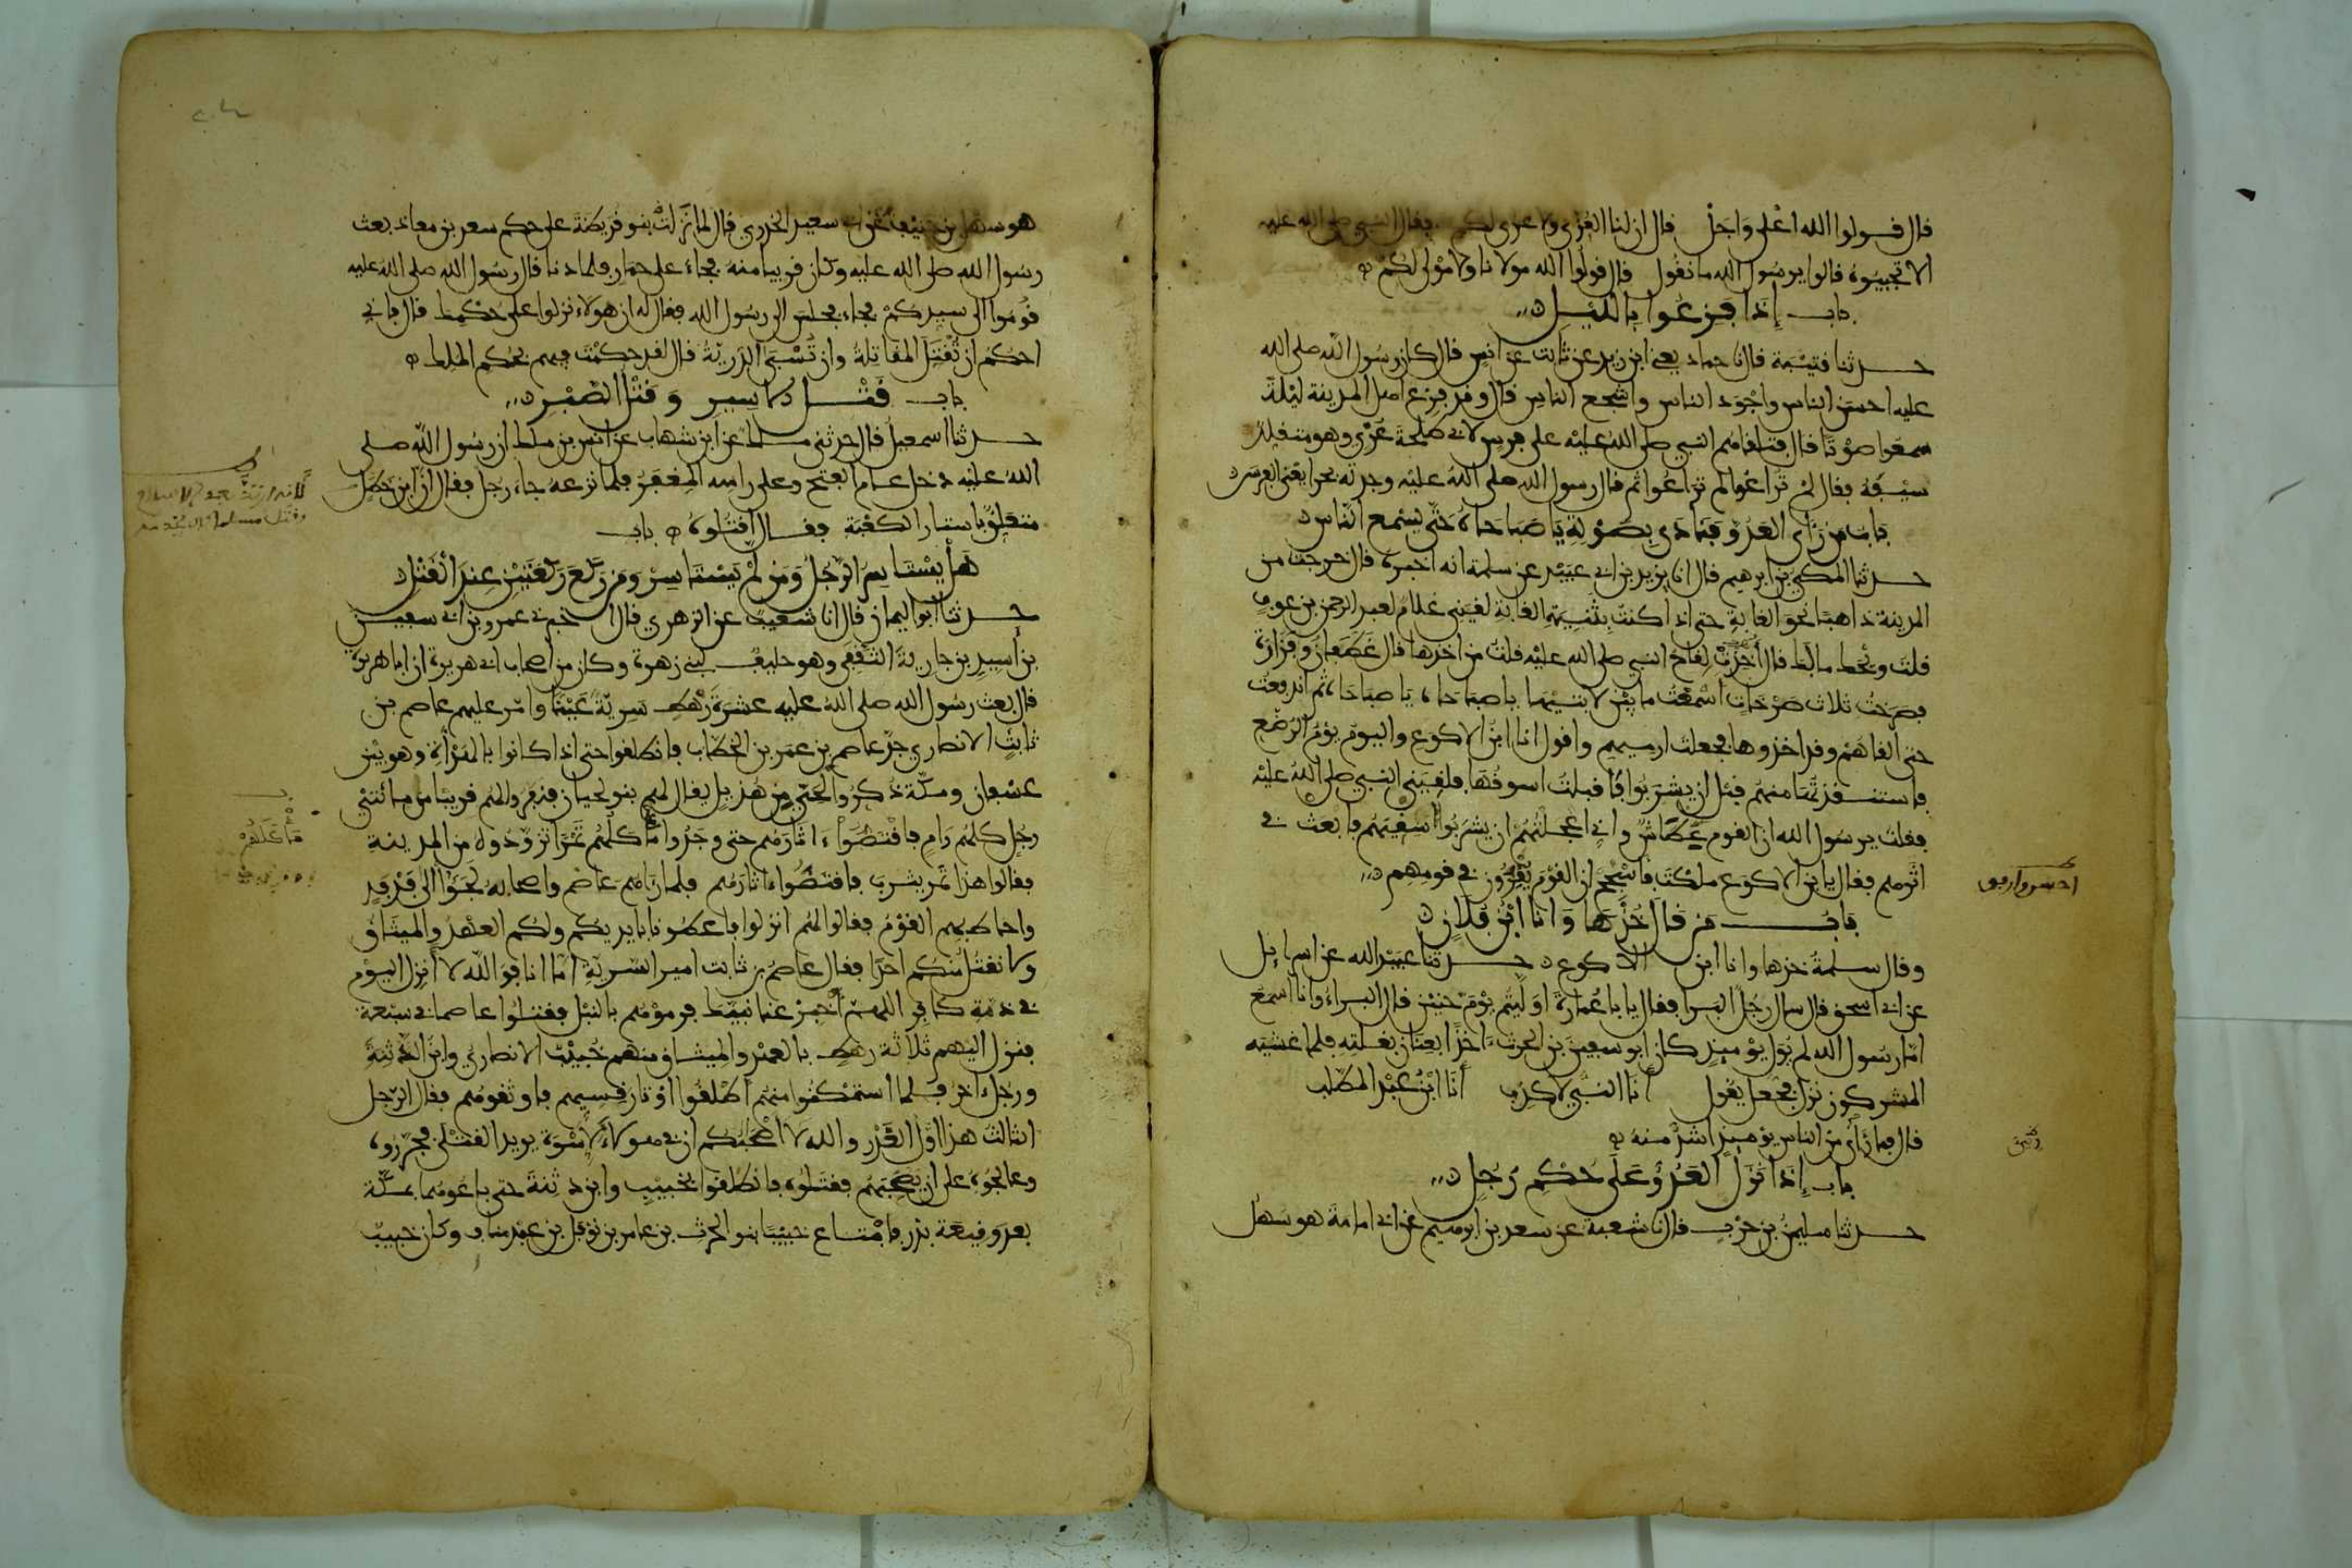 قال قولوا الله اعْلى وَاجَلْ قال ان لنا العُزّى ولا عزى لكم فقال النبي صلى الله عليه
الا تجيبوهُ قالوا يرسُول الله ما نقُول قال قولُوا الله مولانا ولا مَوْلى لكُمْ
باب إذا فزعُوا بالليْل
حدثنا قتيْبة قال نا حماد يعني ابن زيد عن ثابت عن انس قال كان رسُول الله صلى الله
عليه احسن الناس واجْوَد الناس واشجع الناس قال وقد فزع اهل المدينة ليْلة
سمعوا صوْتا قال فتلقاهُم النبي صلى الله عليْه على فرس لابي طلحة عُرْي وهو متقلد
سيْفهُ فقال لمْ تُراعُوا لم تراعُوا ثم قال رسول الله صلى اللهُ عليْه وجدته بحرا يعْني الفرس
بَابُ من رَأى العَدُوّ فنَادَى بصَوْتِه يَا صَبَاحَاهُ حَتّى يسْمع النّاس
حدثنا المكي بن ابرهيم قال انا يزيد بن ابي عبيْد عن سلمة انه اخبره قال خرجت من
المدينة ذاهبًا نحو الغابةِ حتى اذا كنتُ بثنيةِ الغابةِ لقيَني غلامٌ لعبد الرحمن بن عوفٍ
قلتُ ويْحك ما لك قال أُخِذَتْ لِقاحُ النبي صلى الله عليْه قلت من اخذها قال غَطَفان وفَزارة
فصرختُ ثلاث صَرْخَاتٍ اسْمعْتُ ما بيْن لابتَيْها يا صباحاه يا صباحاه ثم اندفعْتُ
حتى القاهُمْ وقد اخذوها فجعلت ارميهم واقول انا ابنُ الاكوع واليوم يوْمُ الرُضّع
فاستنقذتُها منهُم قبْل ان يشْرَبُوا فاقبلتُ اسوقُهَا فلقيَني النبي صلى اللهُ عليْه
فقلت يرسُول الله ان القوم عِطَاشٌ واني اعْجلْتُهُمْ ان يشْرَبُوا سِقْيَهُم فابْعث في
اثْرهم فقال يا بن الاكوع ملكْتَ فأسْجِحْ ان القوْم يُقْرَوْن في قومِهم
بَابُ من قال خُذْهَا وَانَا ابْنُ فُلانٍ
وقال سلمةُ خذها وانا ابن الاكوع حدثنا عبيْد الله عن اسراءِيل
عن ابي اسحق قال سال رَجُل البَرا فقال يا با عُمارة اوَلّيْتم يوْم حنيْن قال البراءُ وانا اسمعُ
امّا رسُول الله لم يُوَلّ يوْميِذ كان ابو سفيٰن بن الحرث ءاخذًا بعنان بغْلتِه فلما غشيه
المشركون نزل فجعل يقُول أنا النبي لا كذب أنا ابْنُ عبْد المطّلب
قال فما رُأي من الناس يوْميِذ اشدّ منهُ
باب إذَا نزَلَ العَدُوُّ عَلَى حُكْم رَجُل
حدثنا سليمٰن بن حرْبٍ قال نا شعبة عن سعد بن ابرهيم عن ابي امامة هو سَهل
هو سهل بن حنيْف عن ابي سعيد الخدري قال لما نزلتْ بنو قُريظة على حكم سعد بن معاذ بعث
رسُول الله صلى الله عليه وكان قريبا منهُ فجاء على حمار فلما دنا قال رسُول الله صلى الله عليه
قُومُوا الى سيدكُمْ فجاء فجلس الى رسُول الله فقال له ان هولاء نزلوا على حُكْمك قال فاني
احكُم ان تُقْتل المقَاتِلةُ وان تُسْبَى الذريّةُ قال لقد حكمْتَ فيهم بحُكم الملِك
باب قَتْل الاسِير وَقتْل الصّبْر
حدثنا اسمعيل قال حدثني ملك عن ابن شهاب عن انس بن ملك ان رسُول الله صلى
الله عليْه دخل عام الفتح وعلى راسه المِغْفَر فلما نزعه جاء رجُل فقال ان ابن خطَل
متعلقٌ باستار الكعْبة فقال اقتلُوه باب
هَلْ يسْتاسِرُ الرّجُلُ وَمَن لمْ يَسْتاسِرْ ومن رَكَع ركْعَتَيْن عِند القَتْل
حدثنا ابو اليمان قال انا شُعَيْب عن الزهري قال اخبرني عمرو بن ابي سفيٰن
بن أَسِيد بن جارية الثقَفي وهو حليف لبني زهرة وكان من اصحاب ابي هريرة ان ابا هريرة
قال بعث رسُول الله صلى الله عليه عشرة رَهْط سريّة عَيْنًا وامّر عليهم عاصم بن
ثابت الانصاري جدّ عاصم بن عمر بن الخطّاب فانطلقوا حتى اذا كانوا بالهَدْأةِ وهو بيْن
عسْفان ومكّة ذُكِرُوا لحَيّ من هُذيل يقال لهم بنو لحيان فنفروا لهم قريبًا من مائتَيْ
رجُل كلهُم رامٍ فاقْتصّوا ءاثارهُم حتى وجدُوا مأكلهُم تمْرًا تزوّدُوهُ من المدينة
فقالوا هذا تمر يثرب فاقتصُّوا ءاثارهُم فلما رَاهم عَاصم واصحابه لجَؤا الى فدْفد
واحاط بهم القوْمُ فقالوا لهُم انزلوا فاعطُونا بايديكم ولكُم العهْدُ والميثَاقُ
ولا نقتُل منكُم احدًا فقال عاصمُ بن ثابت امير السّريّةِ امّا انا فوالله لا أنزِل اليوم
في ذمّةِ كافِر اللهمّ أخْبِرْ عنا نبيّك فرموْهُم بالنبْل فقتلُوا عاصما في سبْعة
فنزل اليهم ثلاثة رهط بالعهْد والميثاق منهم خُبيْبٌ الانصاريّ وابن الدّثِنةِ
ورجُل ءاخر فلما استمْكنُوا منهُم اطلقُوا اوْتار قِسِيهم فاوثقوهُم فقال الرّجل
الثالث هذا أوّل الغَدْر والله لا اصْحَبُكم ان في هولاء لأسْوة يريد القتْلى فجرّروه
وعالجُوهُ على ان يصحَبَهُم فقتَلُوه فانطلقُوا بخُبيْب وابن دثِنة حتى باعُوهُما بمكّة
بعد وقيعة بدر فابْتاع خبيْبا بنو الحرث بن عامر بن نوْفل بن عبْد مناف وكان خبيْب